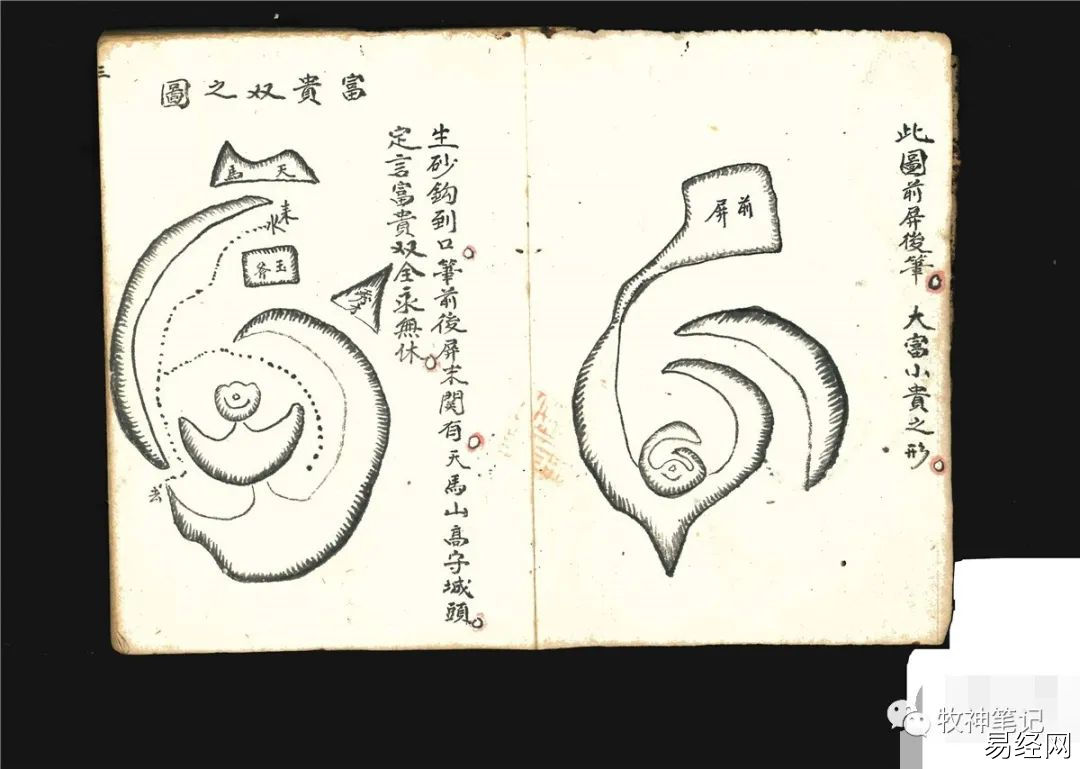 此圖前屏後筆 大富小貴之形
前屏
富貴双之圖
生砂鈎到口筆前後屏末関有天馬山高守城頭
定言富貴双全永無休
天馬
来水
去
三
牧神笔记
易经网